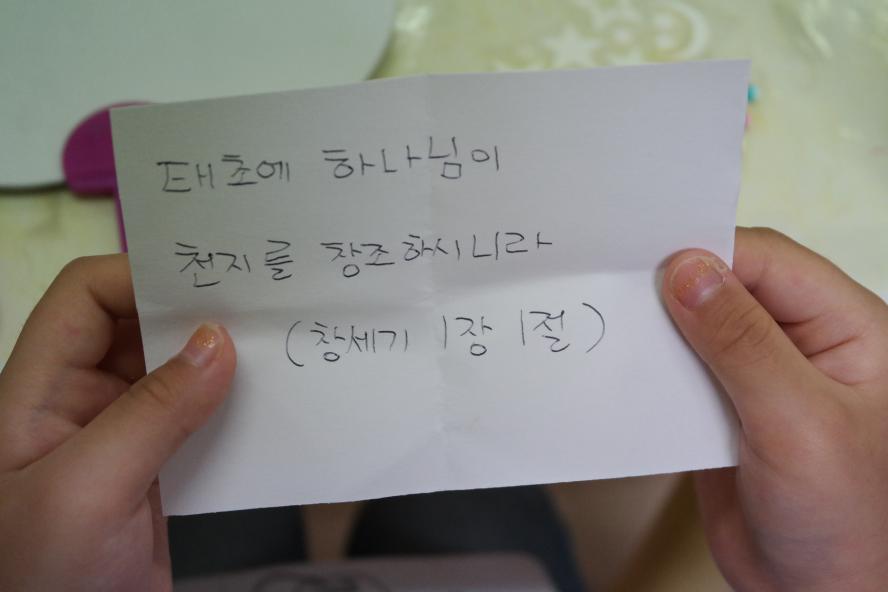 태초에 하나님이
천지를 창조하시니라
(창세기 1장 1절)